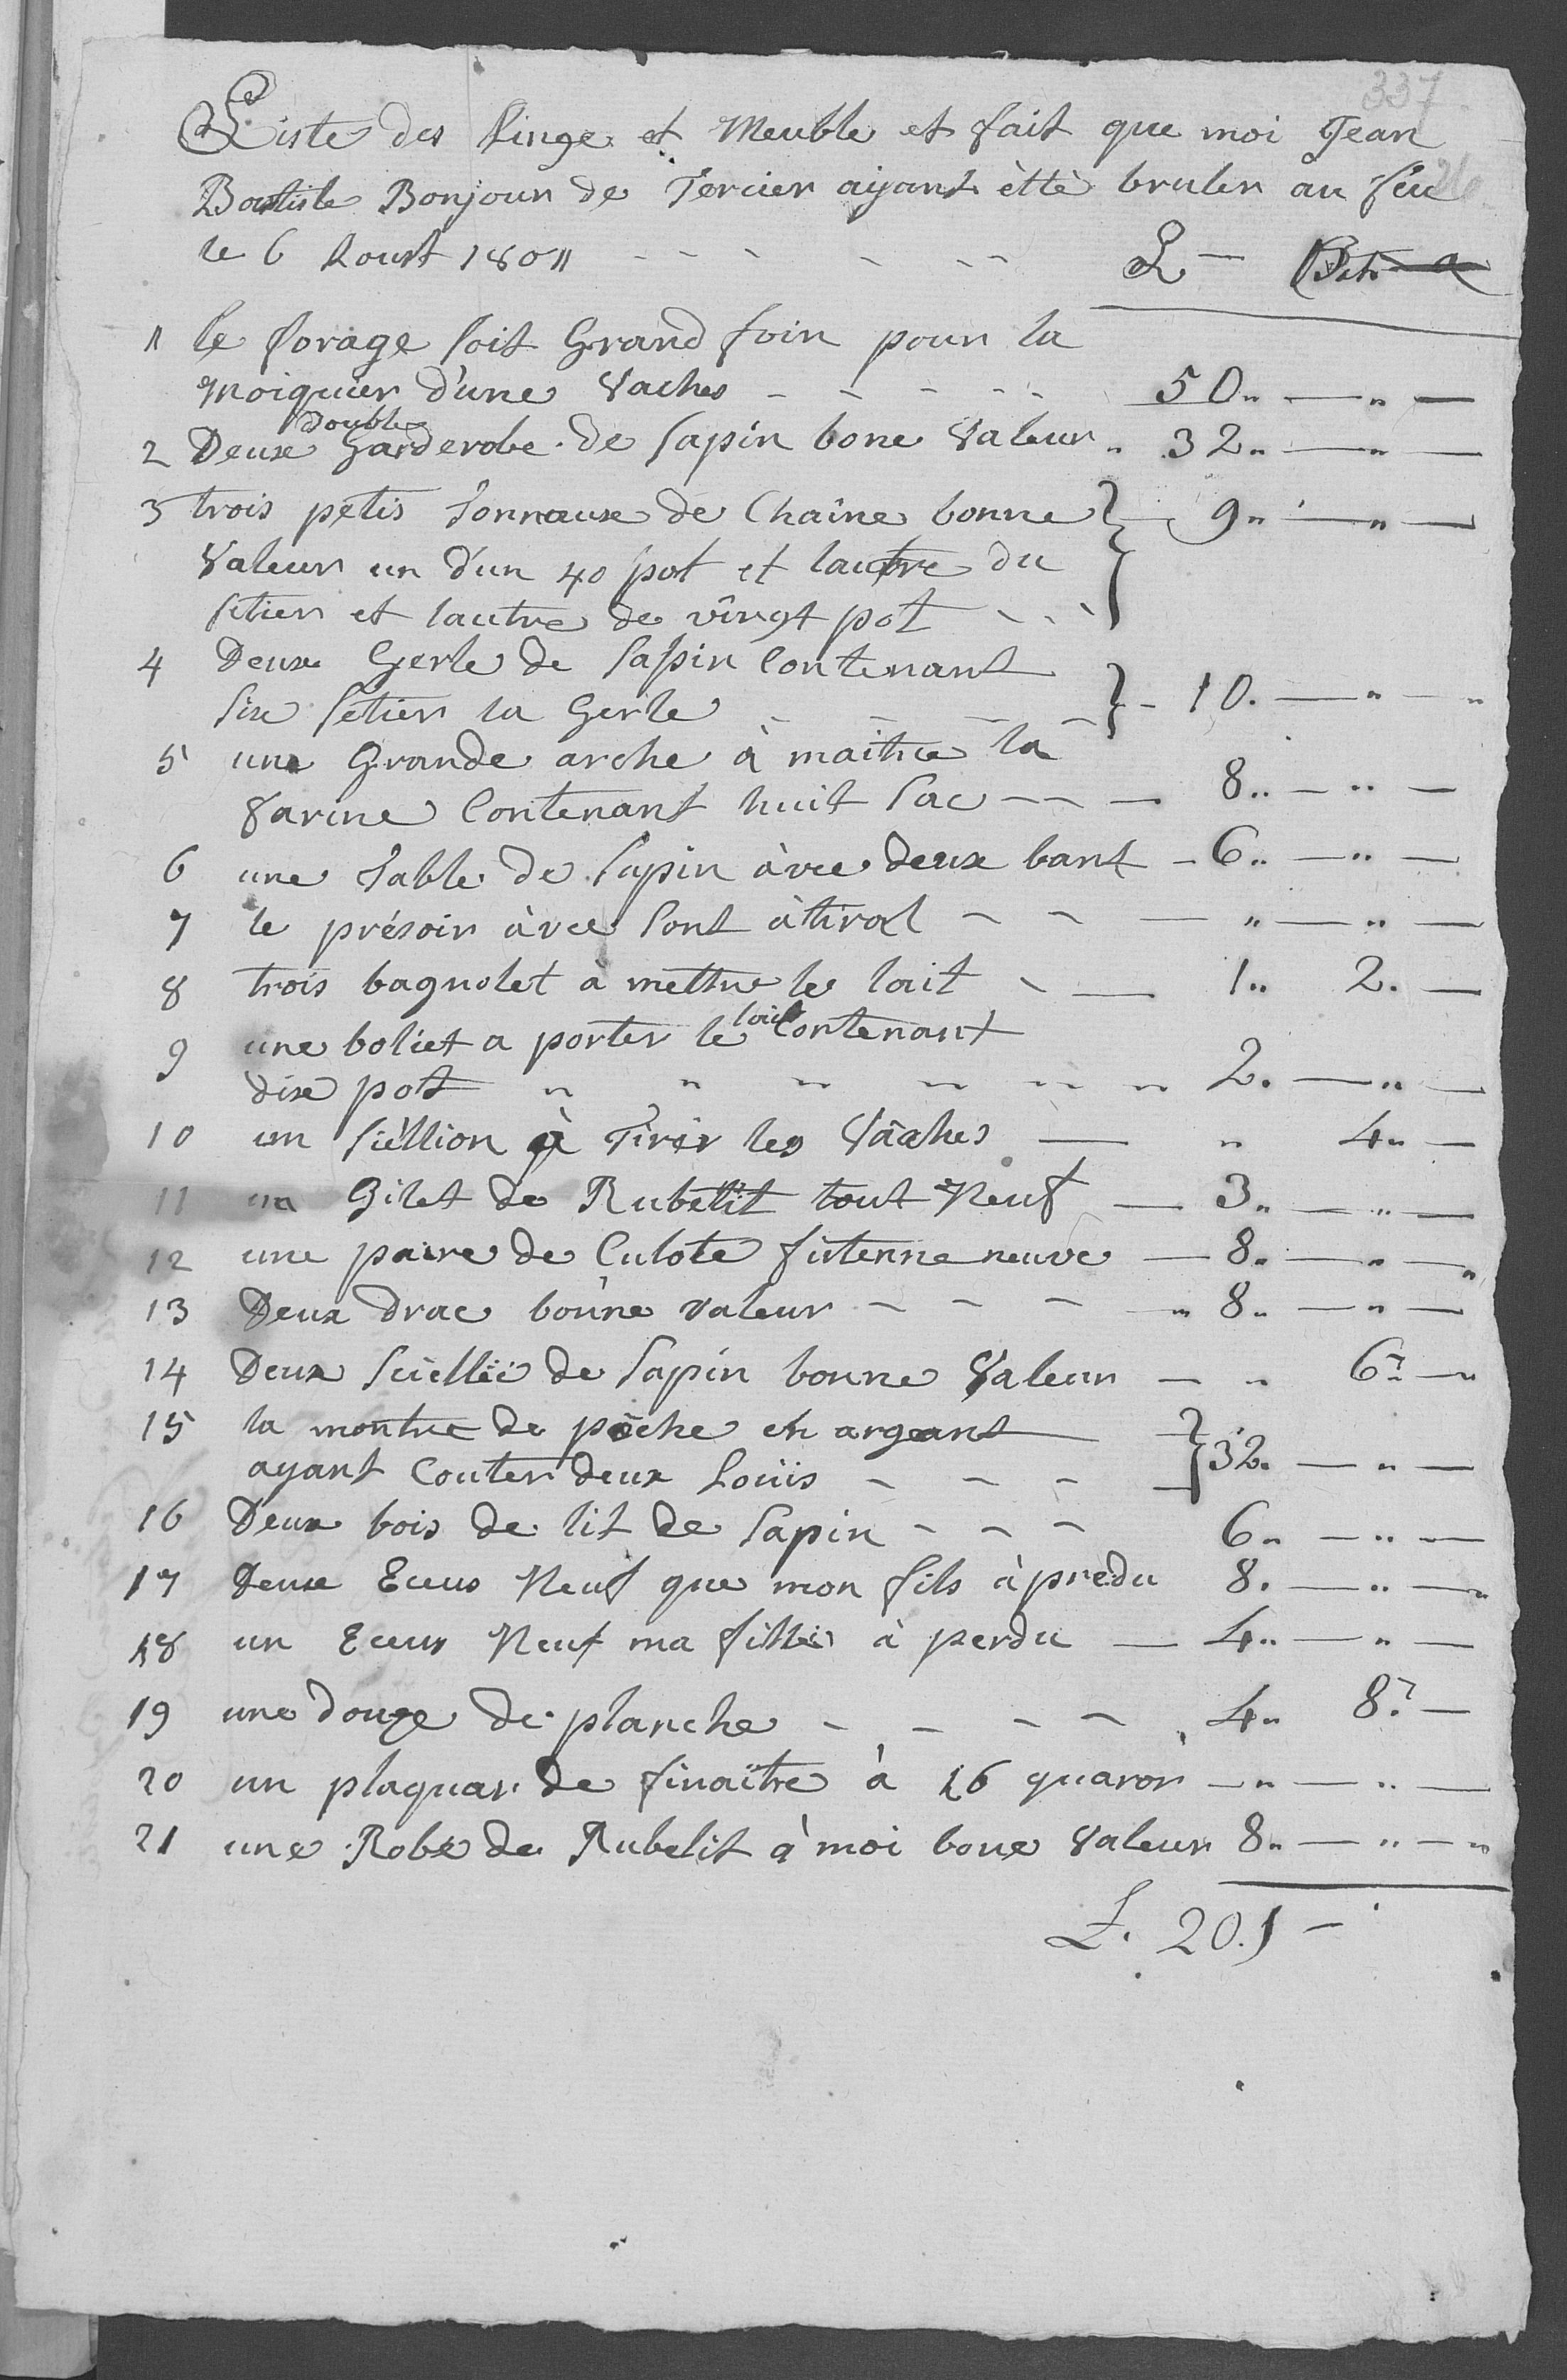 337
Liste des linge et Meuble et fait que moi Jean
Batiste Bonjour de Tercier ayant èttè bruler au feu
le 6 Aoust 1801 - - - - - - L — Bch
1 le forage soit Grand foin pour la
Moiquier d'une Vaches - - - - - 50 " — " —
2 Deux double Garderobe de sapin bone Valeur " 32 " — " —
3 trois petis Tonnaux de Chaîne bonne } 9 " — " —
Valeur un d'un 40 pot et lautre du
setier et lautre de vingt pot - - -
4 Deux Gerle de sapin Contenant
six setier la Gerle - - - - } - 10. — " — "
5 une Grande arche à maitre la
farine Contenant huit sac - - — 8 " — " —
6 une Table de sapin àvec deux bant - 6 " — " —
7 le présoir àvec sont àtiral - - — " — " —
8 trois bagnolet à mettre le lait - — 1 " 2. —
9 une boliet a porter le lait Contenant
dix pot " " " " " " 2. — " —
10 un siéllion à Tirer les Vâches — " 4 " —
11 un Gilet de Rubelit tout Neuf — 3 " — " —
12 une paire de Culote futenne neuve — 8 " — " — "
13 Deux drac bonne valeur - - - " 8 " — " —
14 Deux sciellïe de sapin bonne Valeur — " 6 " — "
15 la montre de pôche en argeant
ayant Couter deux Loüis - - - } 32. — " —
16 Deux bois de lit de sapin - - - 6 " — " —
17 Deux Ecus Neuf que mon fils à predu 8. — " — "
18 un Ecus Neuf ma fille à perdu — 4 " — " —
19 une douze de planche - - - - 4 " 8 " —
20 un plaquar de finaître à 16 quaron — " — " —
21 une Robe de Rubelit à moi bone Valeur 8 " — " — "
L. 201 -